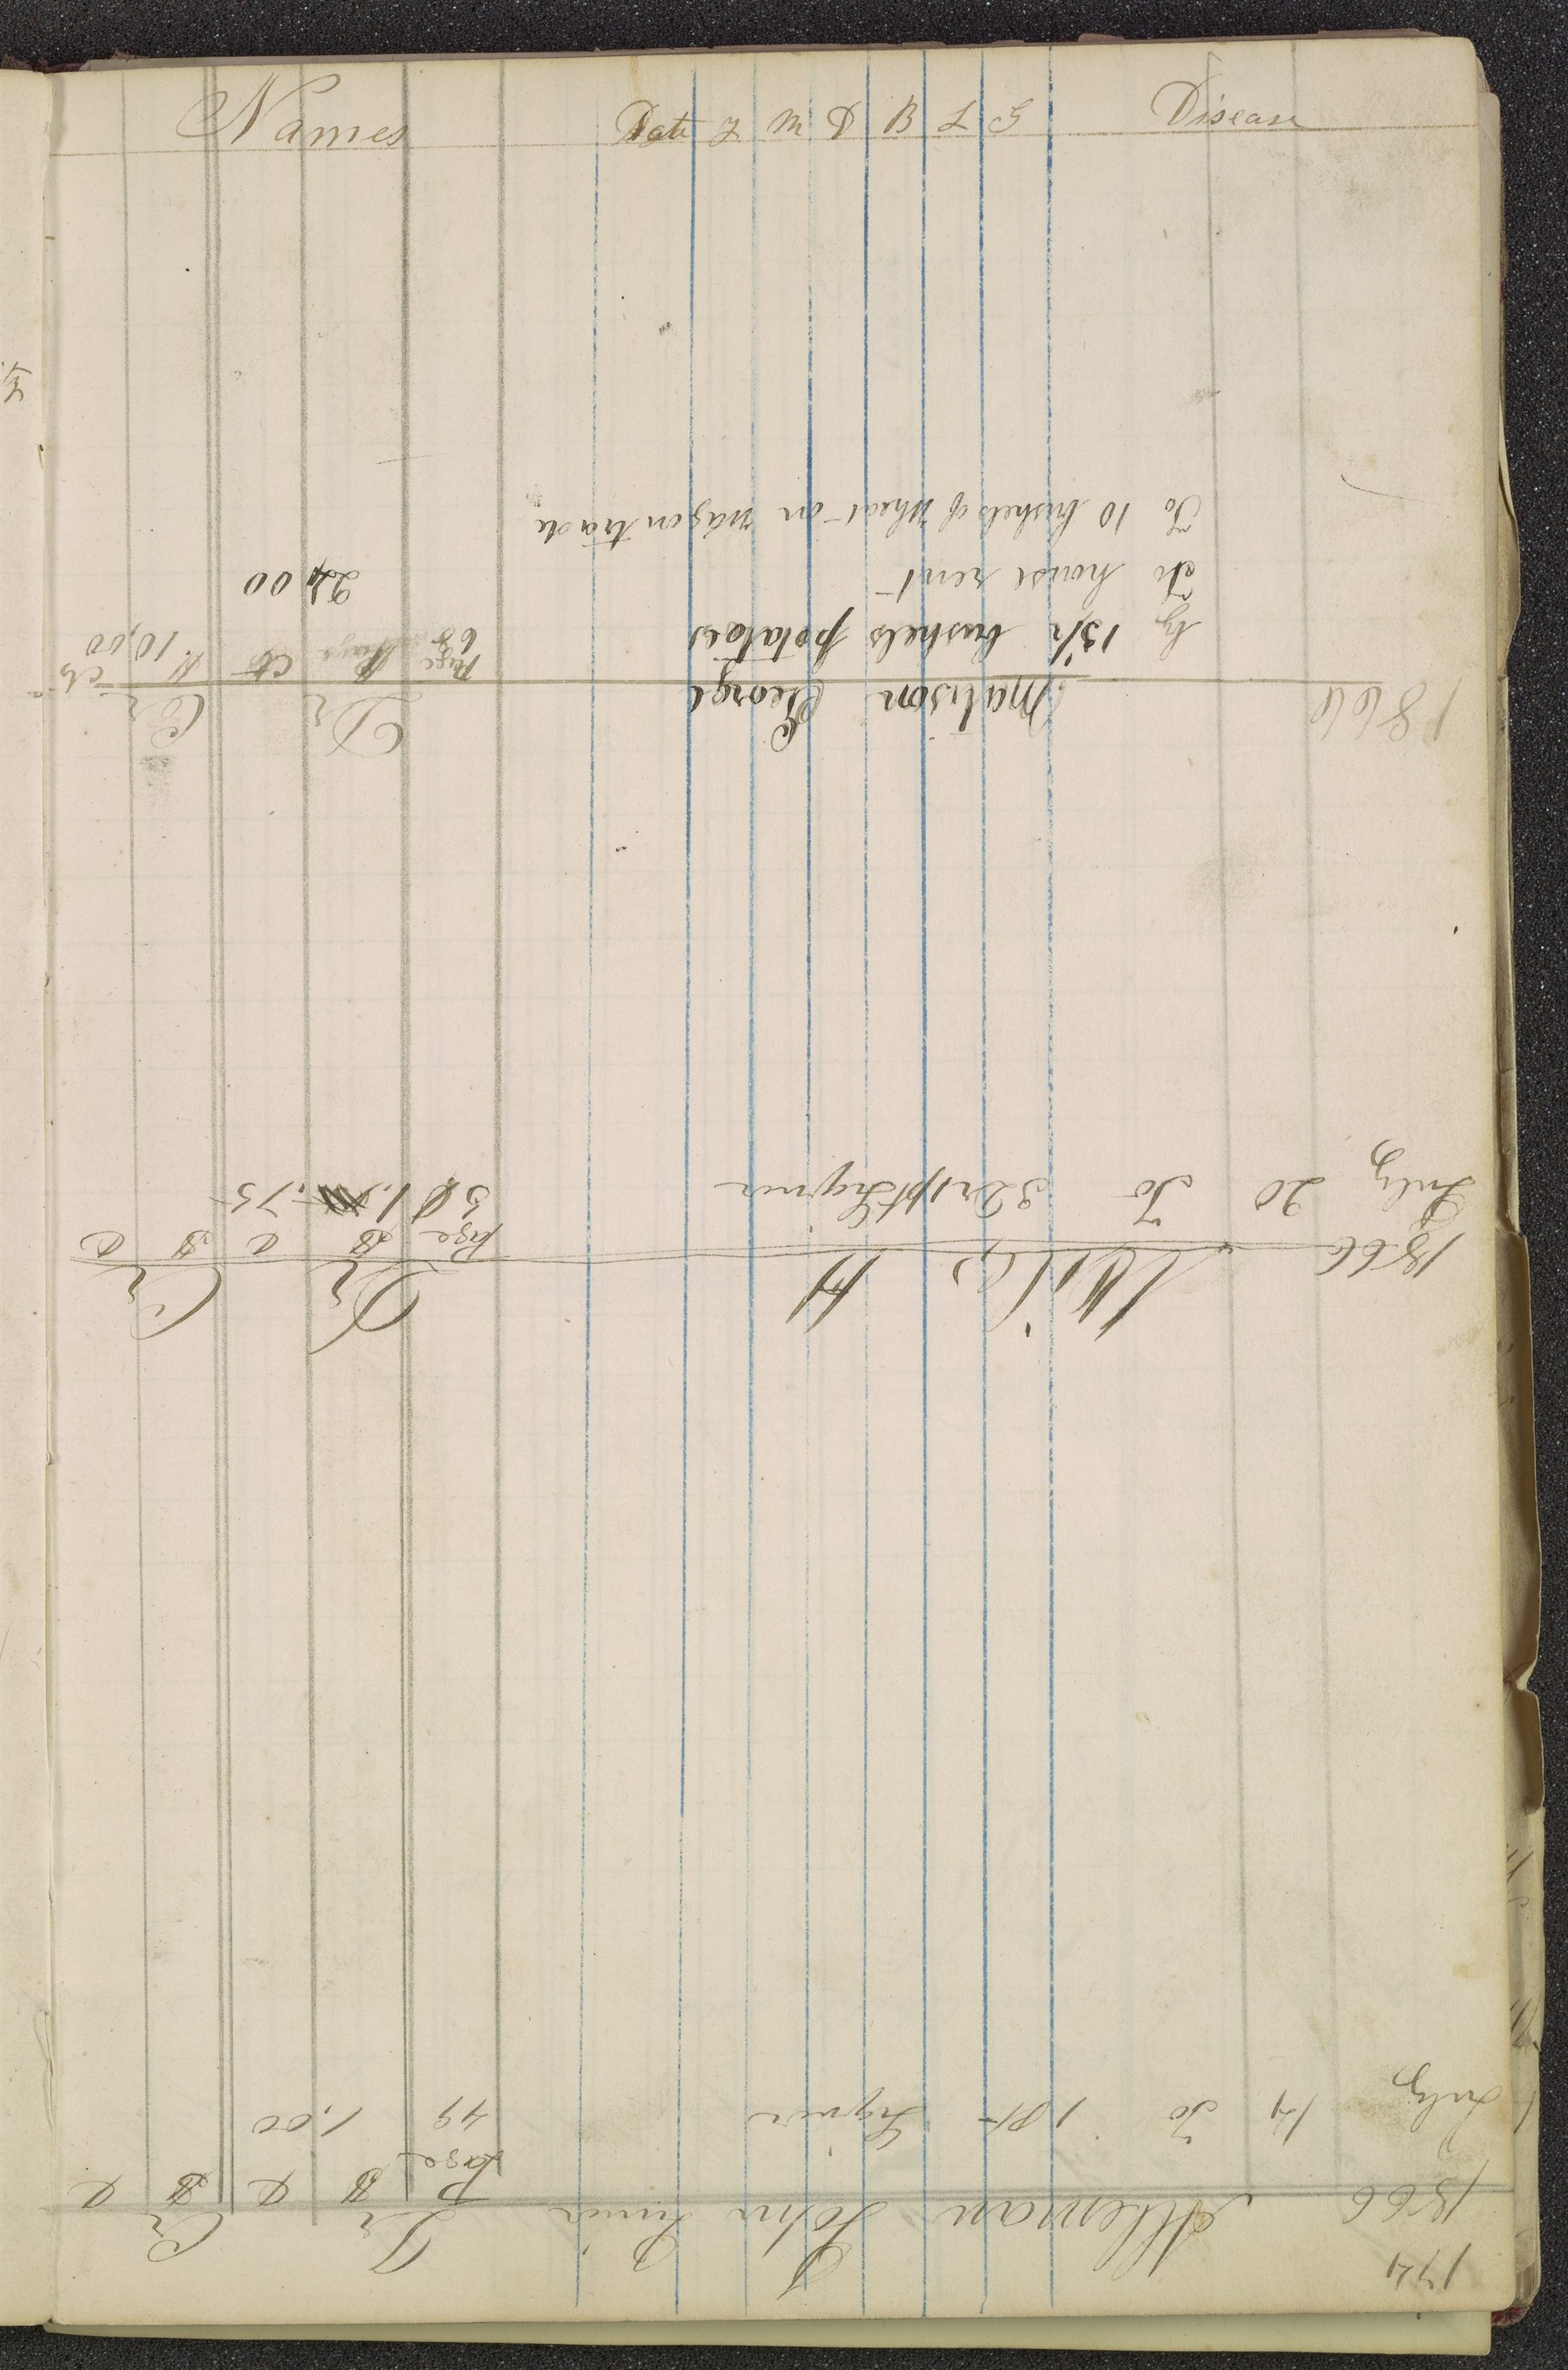 Names Date Z M D B L G Disease
174
Alleman John Junior Dr Cr
1866 Page $ c $ c
July 14 To 1 pt Liquor 49 1.00
Wile H Dr Cr
1866 Page $ c $ c
July 20 To 1 pt Liquor .75
1866 Matison George Dr Cr
Page cts cts
by bushels potatoes 68 10,00
To house rent 24 00
To 10 bushels of Wheat on wagon trade